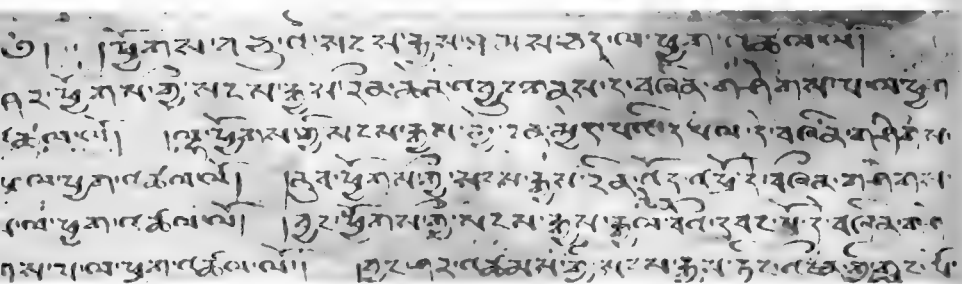 ༄། །ཕྱོགས་བཅུའི་སངས་རྒྱས་ཐམས་ཅད་ལ་ཕྱག་འཚལ་ལོ།
ཤར་ཕྱོགས་ཀྱི་སངས་རྒྱས་རིན་ཆེན་འབྱུང་གནས་དེ་བཞིན་གཤེགས་པ་ལ་ཕྱག
འཚལ་ལོ། །ལྷོ་ཕྱོགས་ཀྱི་སངས་རྒྱས་མྱ་ངན་མྱེད་པའི་དཔལ་དེ་བཞིན་གཤེགས་
པ་ལ་ཕྱག་འཚལ་ལོ། །ནུབ་ཕྱོགས་ཀྱི་སངས་རྒྱས་རིན་འོད་འཕྲོ་དེ་བཞིན་གཤེགས་
པ་ལ་ཕྱག་འཚལ་ལོ། །བྱང་ཕྱོགས་ཀྱི་སངས་རྒྱས་རྒྱལ་བའི་དབང་པོ་དེ་བཞིན་གཤེ
གས་པ་ལ་ཕྱག་འཚལ་ལོ། །བྱང་ཤར་འཚམས་ཀྱི་སངས་རྒྱས་ཏིང་འཛིན་གྱི་གླང་པོ་